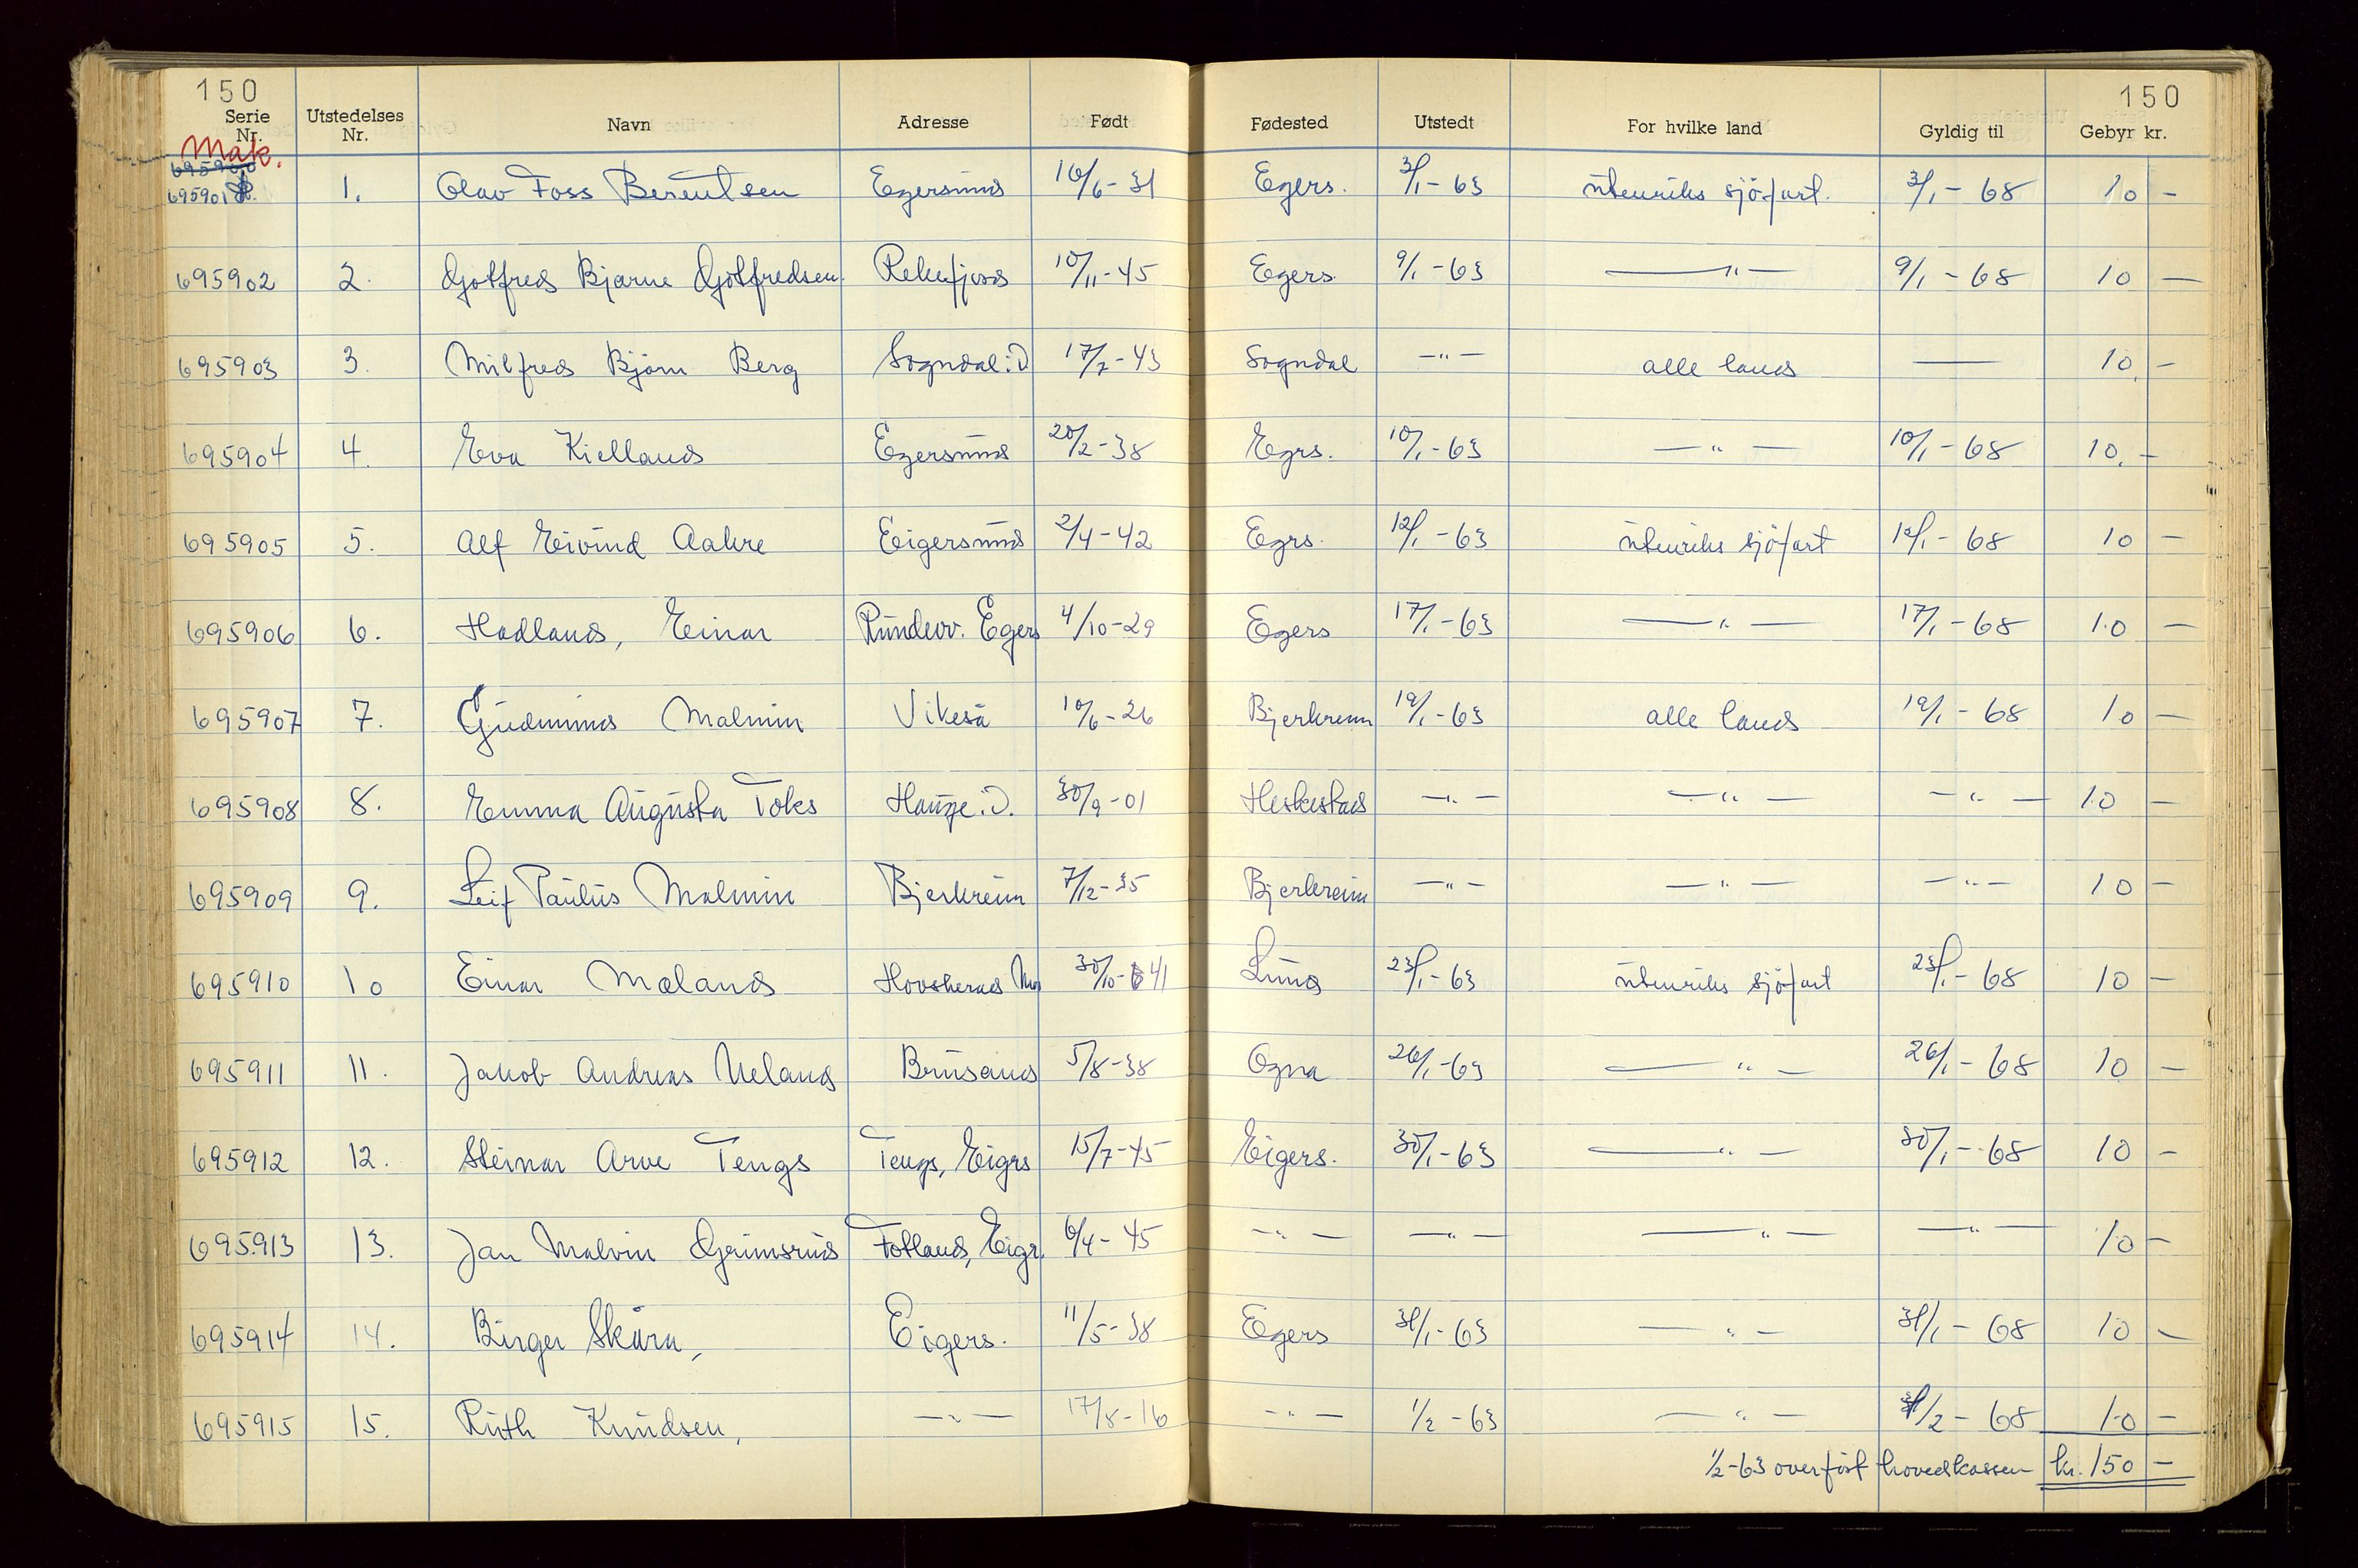 150 150
Serie Nr. Utstedelses Nr. Navn Adresse Født Fødested Utstedt For hvilke land Gyldig til Gebyr kr.
Mak.
695900
695901 1. Olav Foss Berentsen Egersund 16/6-31 Egers. 3/1-63 utenriks sjöfart. 3/1-68 10 -
695902 2. Gotfred Bjarne Gotfredsen. Rekefjord 10/11-45 Egers 9/1-63 —"— 9/1-68 10 —
695903 3. Milfred Bjørn Berg Sogndal i D 17/7-43 Sogndal —"— alle land — 10,-
695904 4. Eva Kielland Egersund 20/2-38 Egrs. 10/1-63 —"— 10/1-68 10,-
695905 5. Alf Eivind Aakre Eigersund 2/4-42 Egrs. 12/1-63 utenriks sjöfart 12/1-68 10 -
695906 6. Hadland, Einar Rundevv. Egers 4/10-29 Egers 17/1-63 —"— 17/1-68 10 -
695907 7. Gudmund Malmin Vikeså 10/6-26 Bjerkreim 19/1-63 alle land 19/1-68 10 -
695908 8. Emma Augusta Toks Hauge i D. 30/9-01 Heskestad —"— —"— —"— 10 -
695909 9. Leif Paulus Malmin Bjerkreim 7/12-35 Bjerkreim —"— —"— —"— 10 -
695910 10 Einar Mæland Hovsherad 30/10-41 Lund 23/1-63 utenriks sjöfart 23/1-68 10 -
695911 11. Jakob Andreas Ueland Brusand 5/8-38 Ogna 26/1-63 —"— 26/1-68 10 -
695912 12. Steinar Arve Tengs Tengs, Eigrs 15/7-45 Eigers. 30/1-63 —"— 30/1-68 10 -
695913 13. Jan Malvin Grimsrud Fotland, Eigr. 6/4-45 —"— —"— —"— —"— 10 -
695914 14. Birger Skåra, Eigers. 11/5-38 Egers 31/1-63 —"— 31/1-68 10 -
695915 15. Ruth Knudsen, —"— 17/8-16 —"— 1/2-63 —"— 1/2-68 10 -
1/2-63 overført hovedkassen kr. 150 -